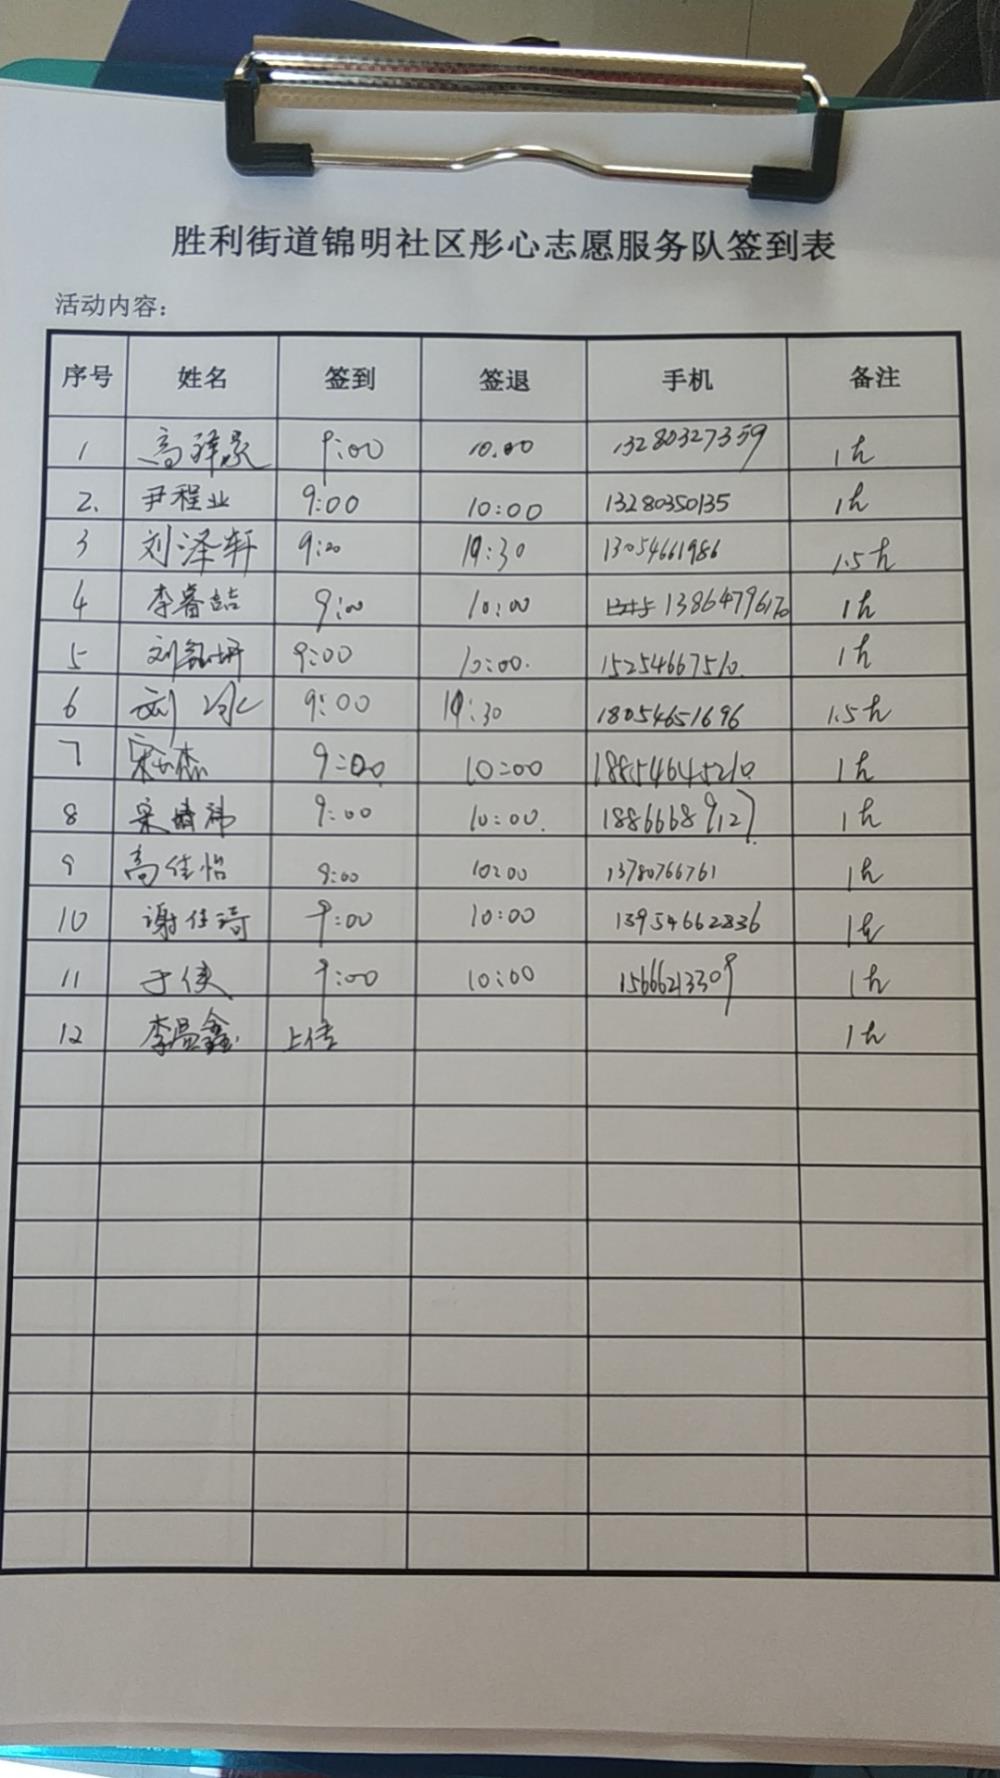 胜利街道锦明社区彤心志愿服务队签到表
活动内容：
序号 姓名 签到 签退 手机 备注
1 高 9:00 10.00 13280327359 1h
2. 尹程业 9:00 10:00 13280350135 1h
3 刘泽轩 9:00 10:30 13054661986 1.5h
4 李睿喆 9:00 10:00 13864796170 1h
5 刘 9:00 10:00. 15254667510. 1h
6 刘冰 9:00 10:30 18054651696 1.5h
7 9:00 10:00 18854645210 1h
8 宋婧祎 9:00 10:00. 18866689127 1h
9 高佳怡 9:00 10:00 13780766761 1h
10 谢佳琦 9:00 10:00 13954662836 1h
11 于侠 9:00 10:00 15666213309 1h
12 李昌鑫 上传 1h